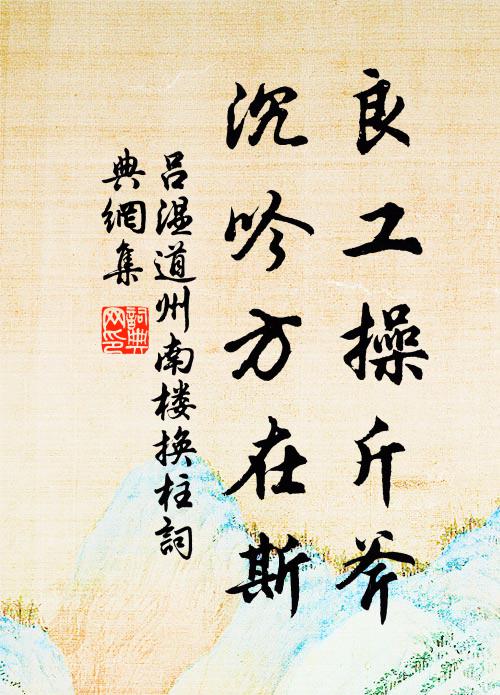 良工操斤斧
沉吟方在斯
吕温道州南楼换柱詞
典網集
詞典网印